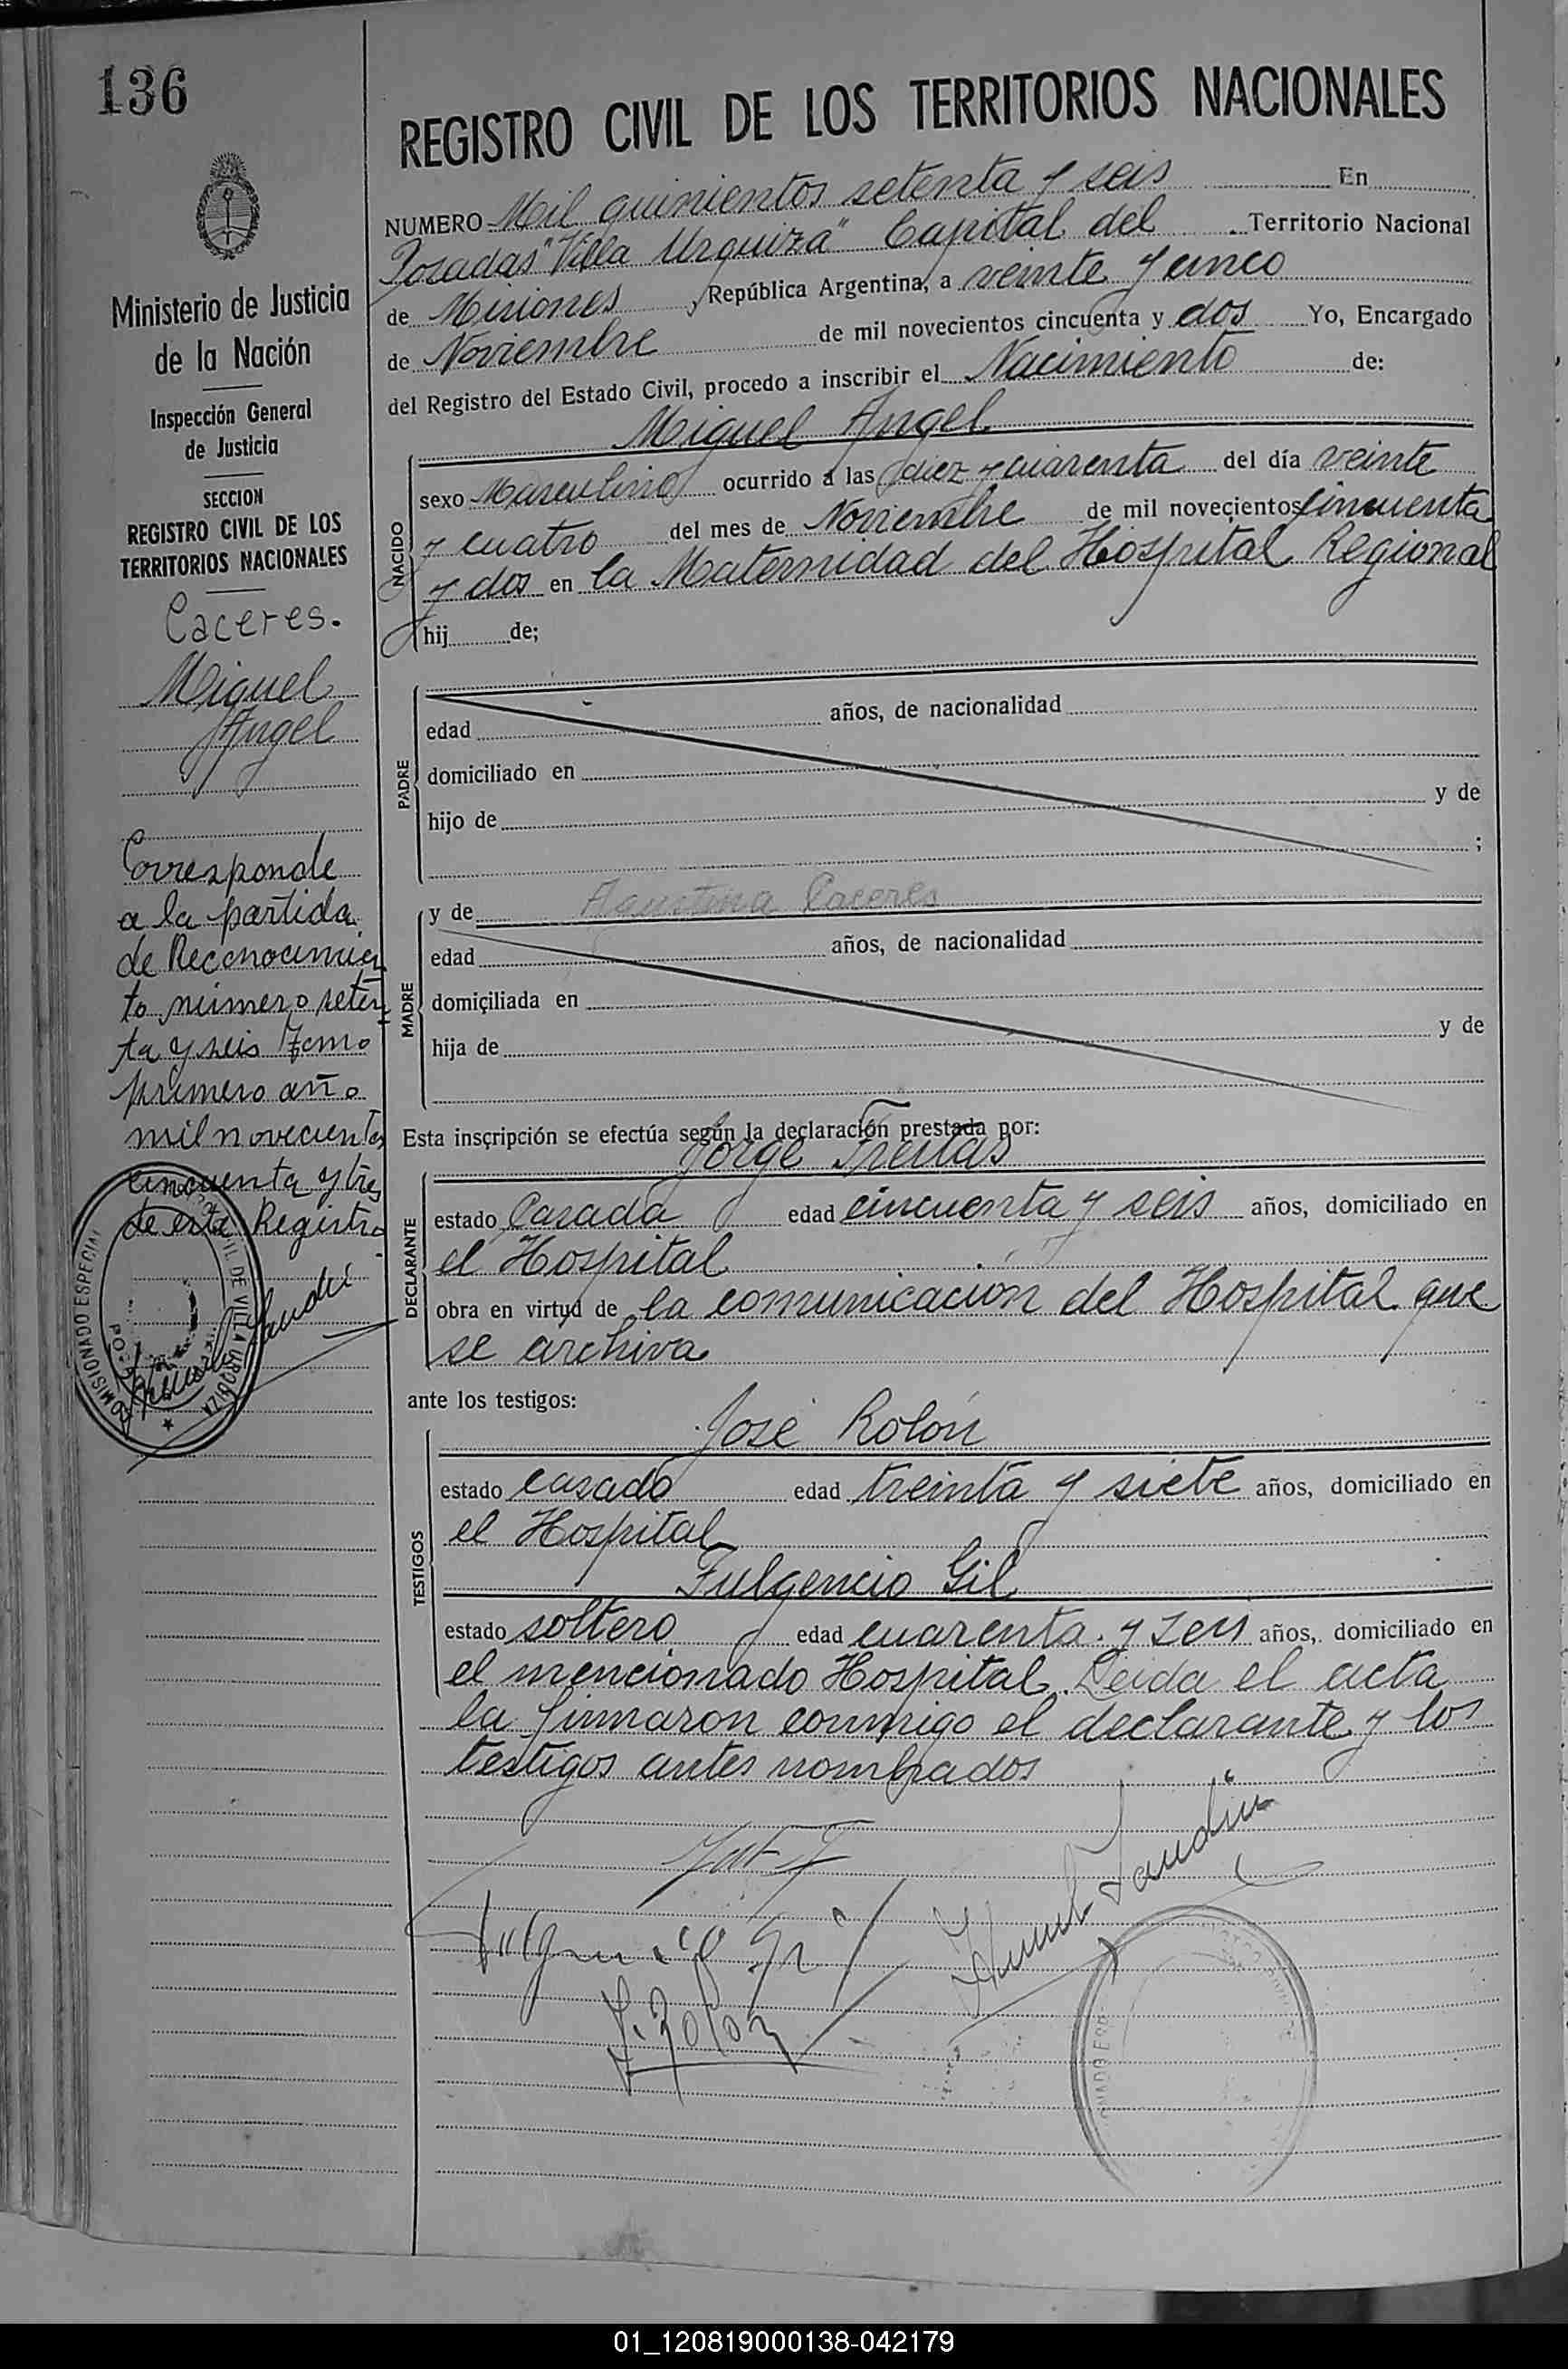 136
Ministerio de Justicia
de la Nación
Inspección General
de Justicia
SECCION
REGISTRO CIVIL DE LOS
TERRITORIOS NACIONALES
Caceres.
Miguel
Angel
Corresponde
a la partida
de Reconocimien
to número seten
ta y seis Tomo
primero año
mil novecientos
cincuenta y tres
de este Registro
REGISTRO CIVIL DE LOS TERRITORIOS NACIONALES
NUMERO Mil quinientos setenta y seis En
Posadas "Villa Urquiza" Capital del Territorio Nacional
de Misiones, República Argentina, a veinte y cinco
de Noviembre de mil novecientos cincuenta y dos Yo, Encargado
del Registro del Estado Civil, procedo a inscribir el Nacimiento de:
Miguel Angel
NACIDO
sexo Masculino ocurrido a las diez y cuarenta del día veinte
y cuatro del mes de Noviembre de mil novecientos cincuenta
y dos en la Maternidad del Hospital Regional
hij de;
PADRE
edad años, de nacionalidad
domiciliado en
hijo de y de
;
MADRE
y de Agustina Caceres
edad años, de nacionalidad
domiciliada en
hija de y de
Esta inscripción se efectúa según la declaración prestada por:
Jorge Freitas
DECLARANTE
estado Casada edad cincuenta y seis años, domiciliado en
el Hospital
obra en virtud de la comunicación del Hospital que
se archiva
ante los testigos:
TESTIGOS
José Rolón
estado casado edad treinta y siete años, domiciliado en
el Hospital
Fulgencio Gil
estado soltero edad cuarenta y seis años, domiciliado en
el mencionado Hospital. Leida el acta
la firmaron conmigo el declarante y los
testigos antes nombrados
Fulgencio Gil
J. Rolon
01_120819000138-042179